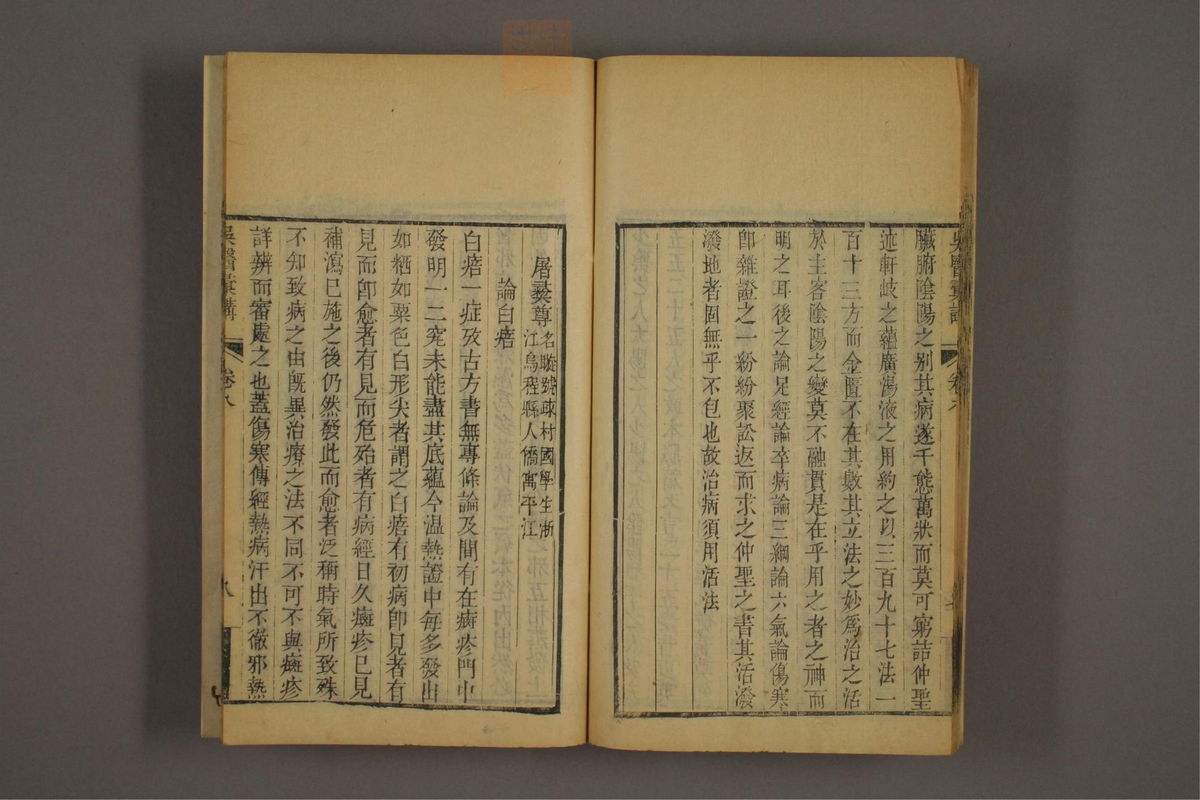 臟腑陰陽之别其病遂千態萬狀而莫可窮詰仲聖
述軒岐之蘊廣湯液之用約之以三百九十七法一
百十三方而金匱不在其數其立法之妙爲治之活
於主客陰陽之變莫不融貫是在乎用之者之神而
明之耳後之論足經論卒病論三綱論六氣論傷寒
卽雜證之一紛紛聚訟返而求之仲聖之書其活潑
潑地者固無乎不包也故治病須用活法
屠彝尊名暶號疎村國學生浙
江烏程縣人僑寓平江
論白㾦
白㾦一症攷古方書無專條論及間有在癍疹門中
發明一二究未能盡其底蘊今温熱證中每多發出
如粞如粟色白形尖者謂之白㾦有初病卽見者有
見而卽愈者有見而危殆者有病經日久癍疹已見
補瀉已施之後仍然發此而愈者泛稱時氣所致殊
不知致病之由旣異治療之法不同不可不與癍疹
詳辨而審處之也蓋傷寒傳經熱病汗出不徹邪熱
吳醫彙講
卷八
八